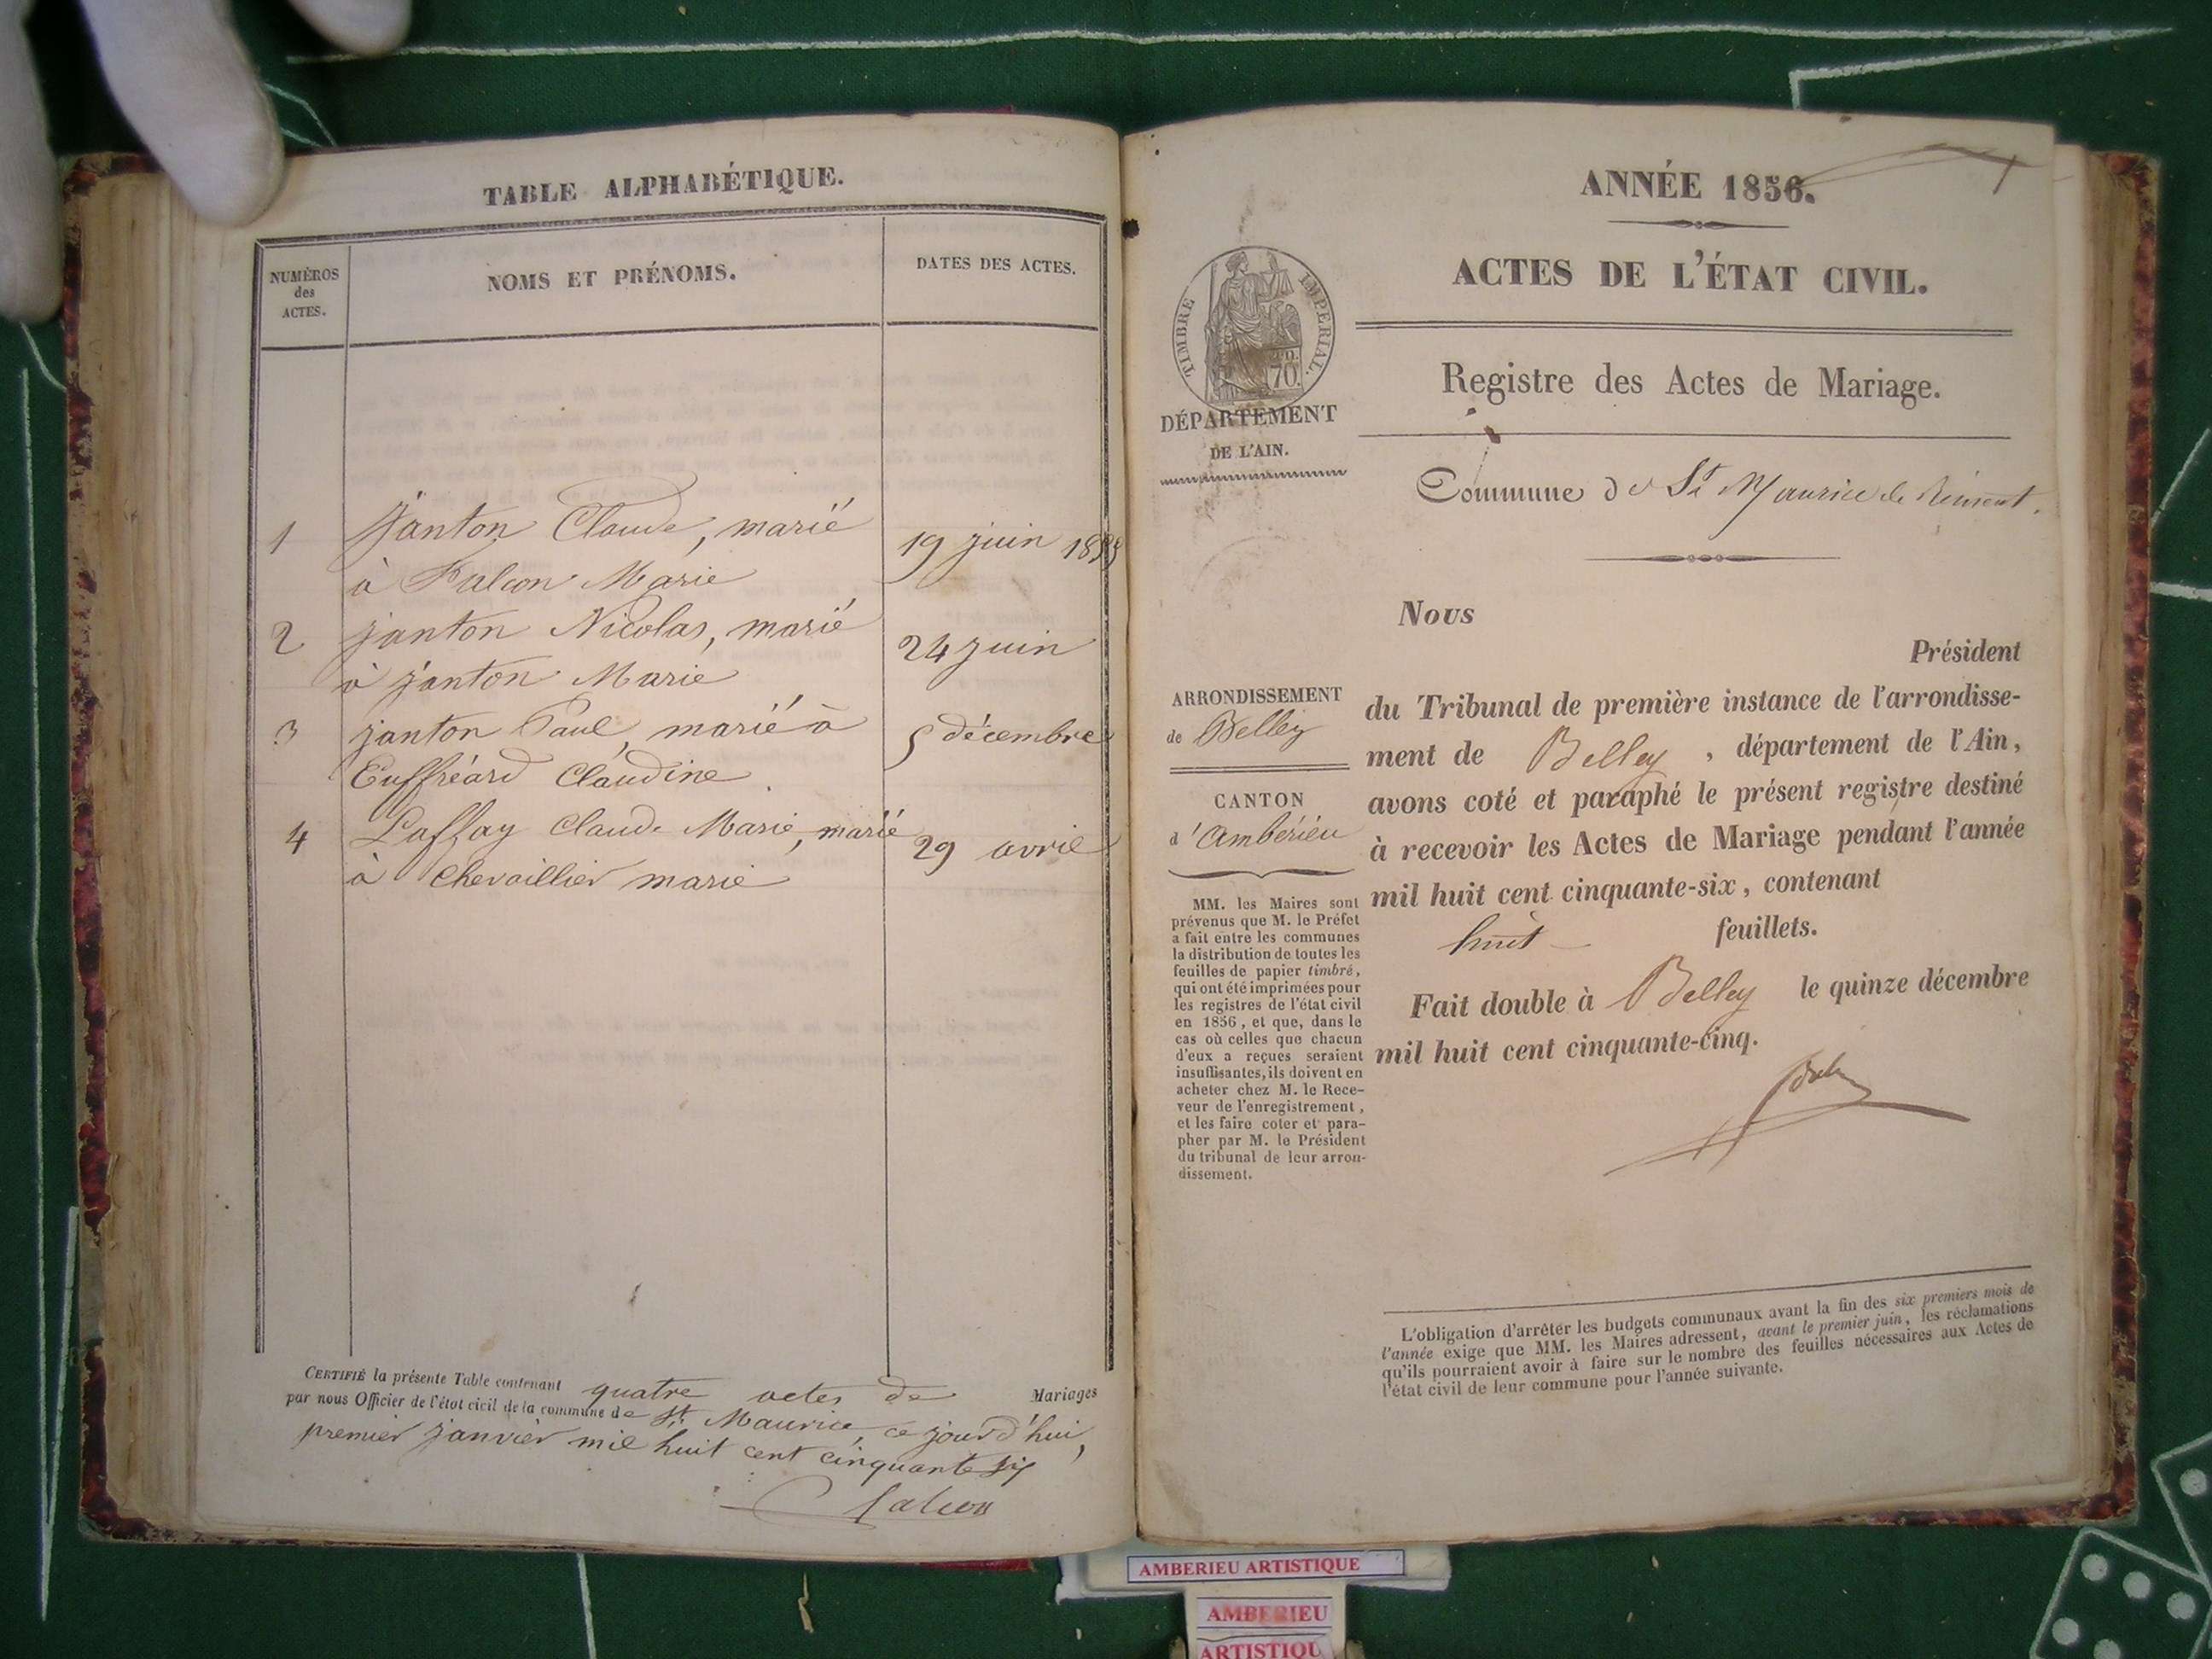 TABLE ALPHABÉTIQUE.
NUMÉROS
des
ACTES.
NOMS ET PRÉNOMS.
DATES DES ACTES.
1 Janton Claude, marié 19 juin 1855
à Falcon Marie
2 janton Nicolas, marié 24 juin
à janton Marie
3 janton Paul, marié à 5 décembre
Euffréard Claudine
4 Laffay Claude Marie, marié 29 avril
à Chevaillier marie
CERTIFIÉ la présente Table contenant quatre actes de Mariages
par nous Officier de l'état civil de la commune de St. Maurice, ce jourd'hui,
premier janvier mil huit cent cinquante six
Falcon
ANNÉE 1856.
ACTES DE L'ÉTAT CIVIL.
TIMBRE IMPERIAL.
70.
DÉPARTEMENT
DE L'AIN.
Registre des Actes de Mariage.
Commune de St Maurice de Rémens.
ARRONDISSEMENT
de Belley
CANTON
d'Ambérieu
MM. les Maires sont
prévenus que M. le Préfet
a fait entre les communes
la distribution de toutes les
feuilles de papier timbré,
qui ont été imprimées pour
les registres de l'état civil
en 1856, et que, dans le
cas où celles que chacun
d'eux a reçues seraient
insuffisantes, ils doivent en
acheter chez M. le Rece-
veur de l'enregistrement,
et les faire coter et para-
pher par M. le Président
du tribunal de leur arron-
dissement.
Nous
Président
du Tribunal de première instance de l'arrondisse-
ment de Belley, département de l'Ain,
avons coté et paraphé le présent registre destiné
à recevoir les Actes de Mariage pendant l'année
mil huit cent cinquante-six, contenant
huit feuillets.
Fait double à Belley le quinze décembre
mil huit cent cinquante-cinq.
L'obligation d'arrêter les budgets communaux avant la fin des six premiers mois de
l'année exige que MM. les Maires adressent, avant le premier juin, les réclamations
qu'ils pourraient avoir à faire sur le nombre des feuilles nécessaires aux Actes de
l'état civil de leur commune pour l'année suivante.
AMBERIEU ARTISTIQUE
AMBERIEU
ARTISTIQU